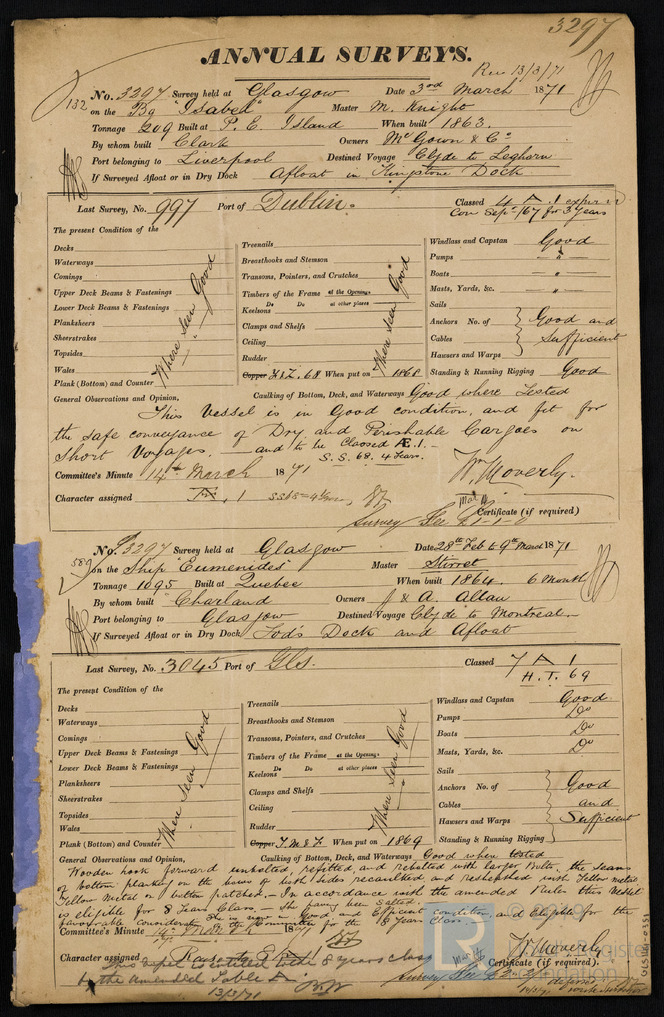 3297
ANNUAL SURVEYS.
Rec 13/3/71
132
No. 3297 Survey held at Glasgow Date 3rd March 1871
on the Bg "Isabel" Master M. Knight
Tonnage 209 Built at P. E. Island When built 1863.
By whom built Clark Owners McGown & Co
Port belonging to Liverpool Destined Voyage Clyde to Leghorn
If Surveyed Afloat or in Dry Dock Afloat in Kingstone Dock
Last Survey, No. 997 Port of Dublin. Classed 4 A 1 expired
Con Sepr 67 for 3 years
The present Condition of the
Decks
Waterways
Comings
Upper Deck Beams & Fastenings
Lower Deck Beams & Fastenings
Planksheers
Sheerstrakes
Topsides
Wales
Plank (Bottom) and Counter
Where seen Good
Treenails
Breasthooks and Stemson
Transoms, Pointers, and Crutches
Timbers of the Frame at the Openings
Do Do at other places
Keelsons
Clamps and Shelfs
Ceiling
Rudder
Copper Y.Z. 68 When put on 1868
Where seen Good
Windlass and Capstan Good
Pumps "
Boats "
Masts, Yards, &c. "
Sails
Anchors No. of Good and
Cables Sufficient
Hawsers and Warps
Standing & Running Rigging Good
General Observations and Opinion, Caulking of Bottom, Deck, and Waterways Good where tested
This Vessel is in Good condition, and fit for
the safe conveyance of Dry and Perishable Cargoes on
Short Voyages. and to be Classed Æ.1.
S.S. 68. 4 Years.
Committee's Minute 14th March 1871
Wm Moverly.
Character assigned
Certificate (if required)
Survey Fee £1-1-0
No. 3297 Survey held at Glasgow Date 28th Feb to 9th March 1871
589
on the Ship Eumenides Master Stirret
Tonnage 1095 Built at Quebec When built 1864. 6 Month
By whom built Charland Owners J & A. Allan
Port belonging to Glasgow Destined Voyage Clyde to Montreal
If Surveyed Afloat or in Dry Dock Tod's Dock and Afloat
Last Survey, No. 3045 Port of Gls. Classed 7 A 1
H. T. 69
The present Condition of the
Decks
Waterways
Comings
Upper Deck Beams & Fastenings
Lower Deck Beams & Fastenings
Planksheers
Sheerstrakes
Topsides
Wales
Plank (Bottom) and Counter
Where seen Good
Treenails
Breasthooks and Stemson
Transoms, Pointers, and Crutches
Timbers of the Frame at the Openings
Do Do at other places
Keelsons
Clamps and Shelfs
Ceiling
Rudder
Copper Y.M & F. When put on 1869
Where seen Good
Windlass and Capstan Good
Pumps Do
Boats Do
Masts, Yards, &c. Do
Sails
Anchors No. of Good
Cables and
Hawsers and Warps Sufficient
Standing & Running Rigging
General Observations and Opinion, Caulking of Bottom, Deck, and Waterways Good where tested
Wooden hook forward unbolted, refitted, and rebolted with larger Bolts, the seams
of bottom planking on the bows of both sides recaulked and resheathed with Yellow metal
Yellow Metal on bottom patched. In accordance with the amended Rules this Vessel
is eligible for 8 Years Class. She having been salted.
She is now in Good and Efficient condition, and eligible for the
favorable consideration of the Committee for the 8 Years Class.
Committee's Minute 14th March 1871
Wm Moverly
Character assigned
Certificate (if required).
This Vessel is entitled to the 8 years class
by the amended Table A.
13/3/71
Survey Fee £2
© 2019
Lloyd's Register
Foundation